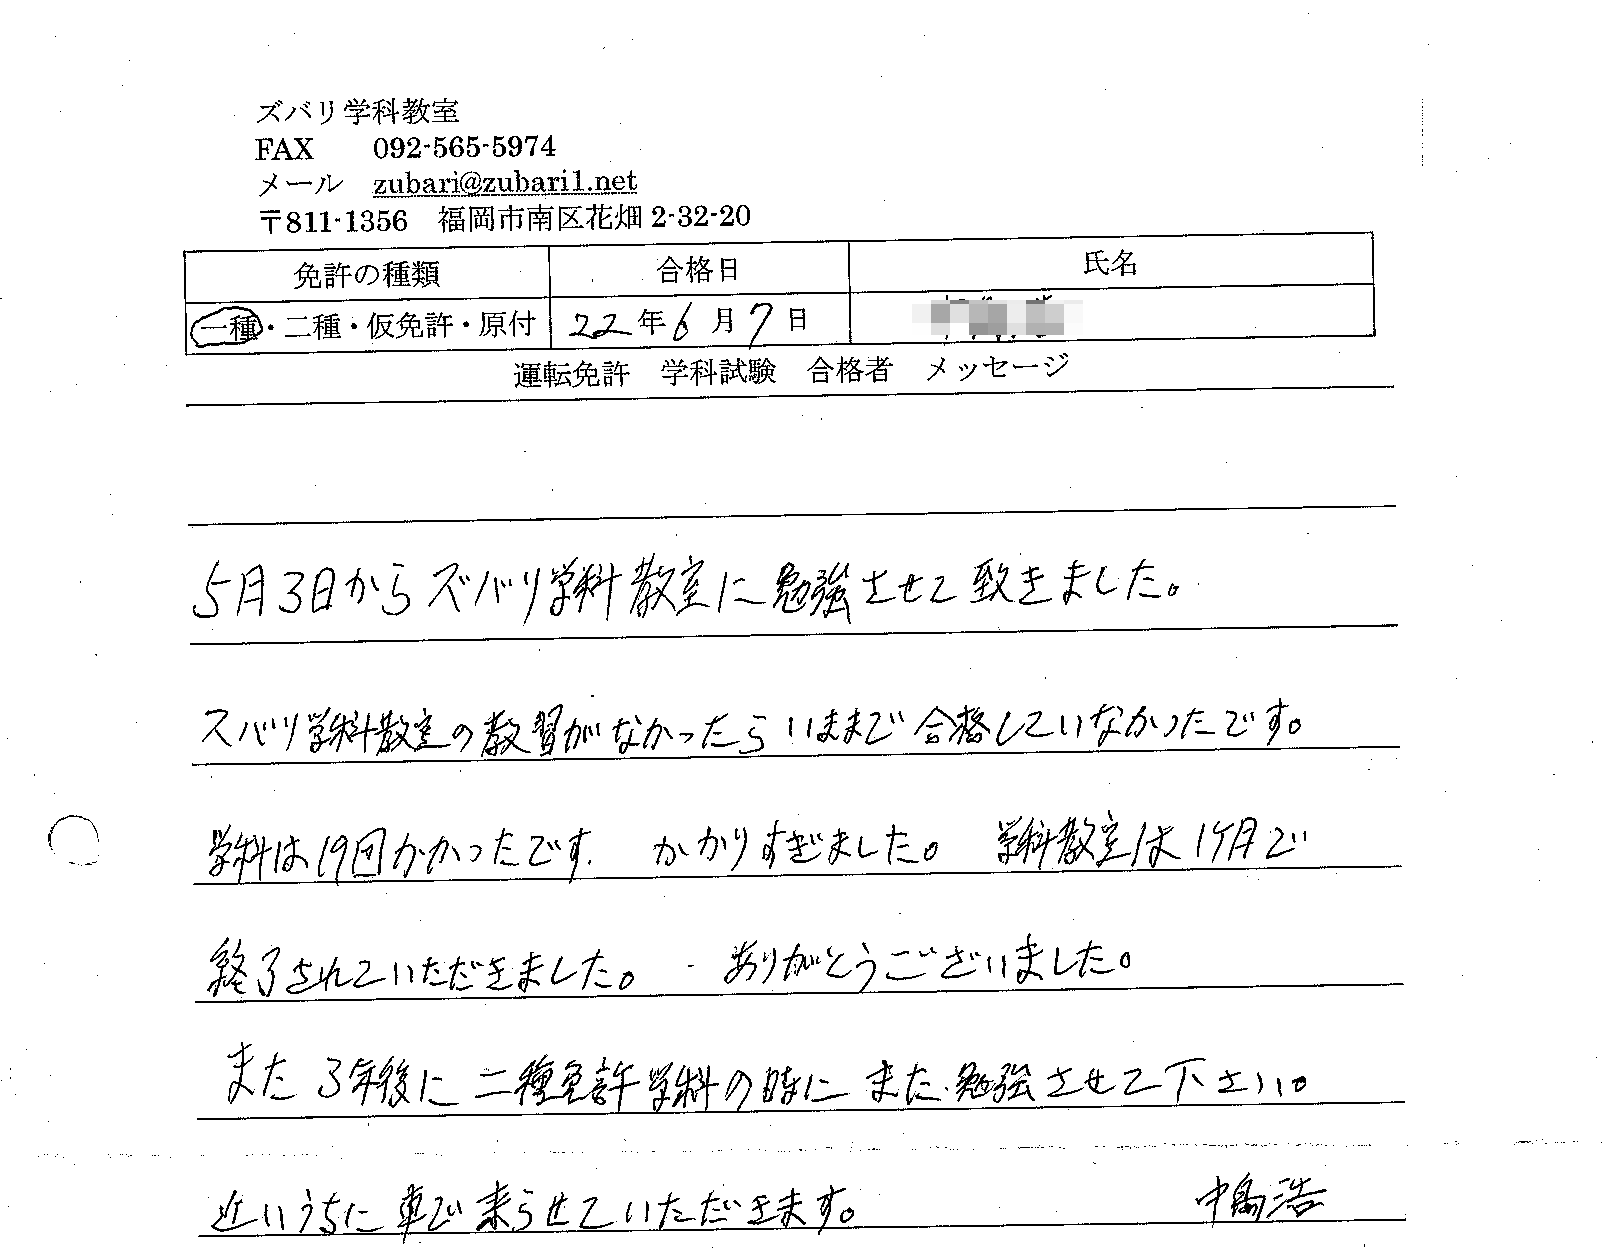 ズバリ学科教室
FAX 092-565-5974
メール zubari@zubari1.net
〒811-1356 福岡市南区花畑 2-32-20
免許の種類 合格日 氏名
一種・二種・仮免許・原付 22年6月7日
運転免許 学科試験 合格者 メッセージ
5月3日からズバリ学科教室に勉強させて致きました。
スバリ学科教室の教習がなかったらいままで合格していなかったです。
学科は19回かかったです. かかりすぎました。 学科教室は1ヶ月で
終了されていただきました。 ありがとうございました。
また3年後に二種免許学科の時にまた勉強させて下さい。
近いうちに車で来らせていただきます。 中島浩